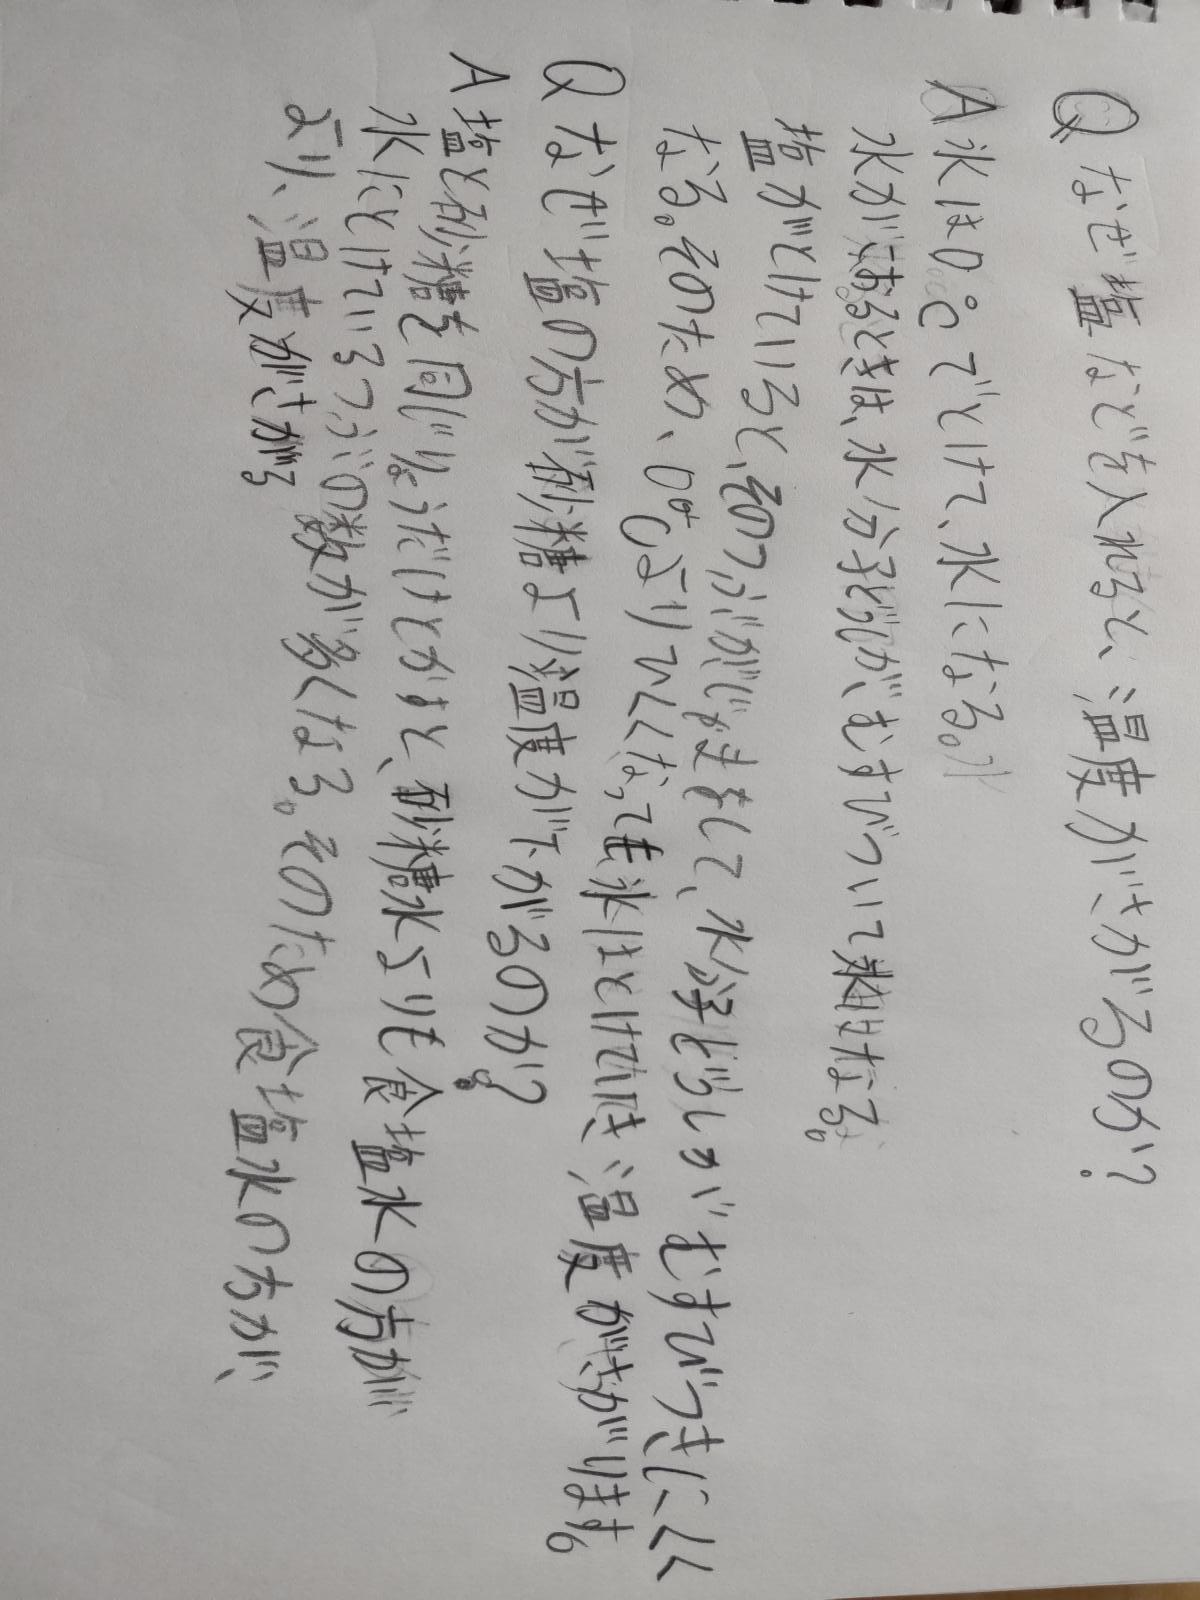 Q なぜ塩などを入れると、温度がさがるのか?
A 氷は0℃でとけて、水になる。
水がこおるときは、水分子どうしが、むすびついて氷になる。
塩がとけていると、そのつぶがじゃまをして、水分子どうしがむすびつきにくく
なる。そのため、0℃よりひくくなっても氷はとけていき 温度がさがります。
Q なぜ塩の方が砂糖より温度が下がるのか?
A 塩と砂糖を同じりょうだけとかすと、砂糖水よりも食塩水の方が
水にとけているつぶの数が多くなる。そのため食塩水の方が、
より、温度がさがる